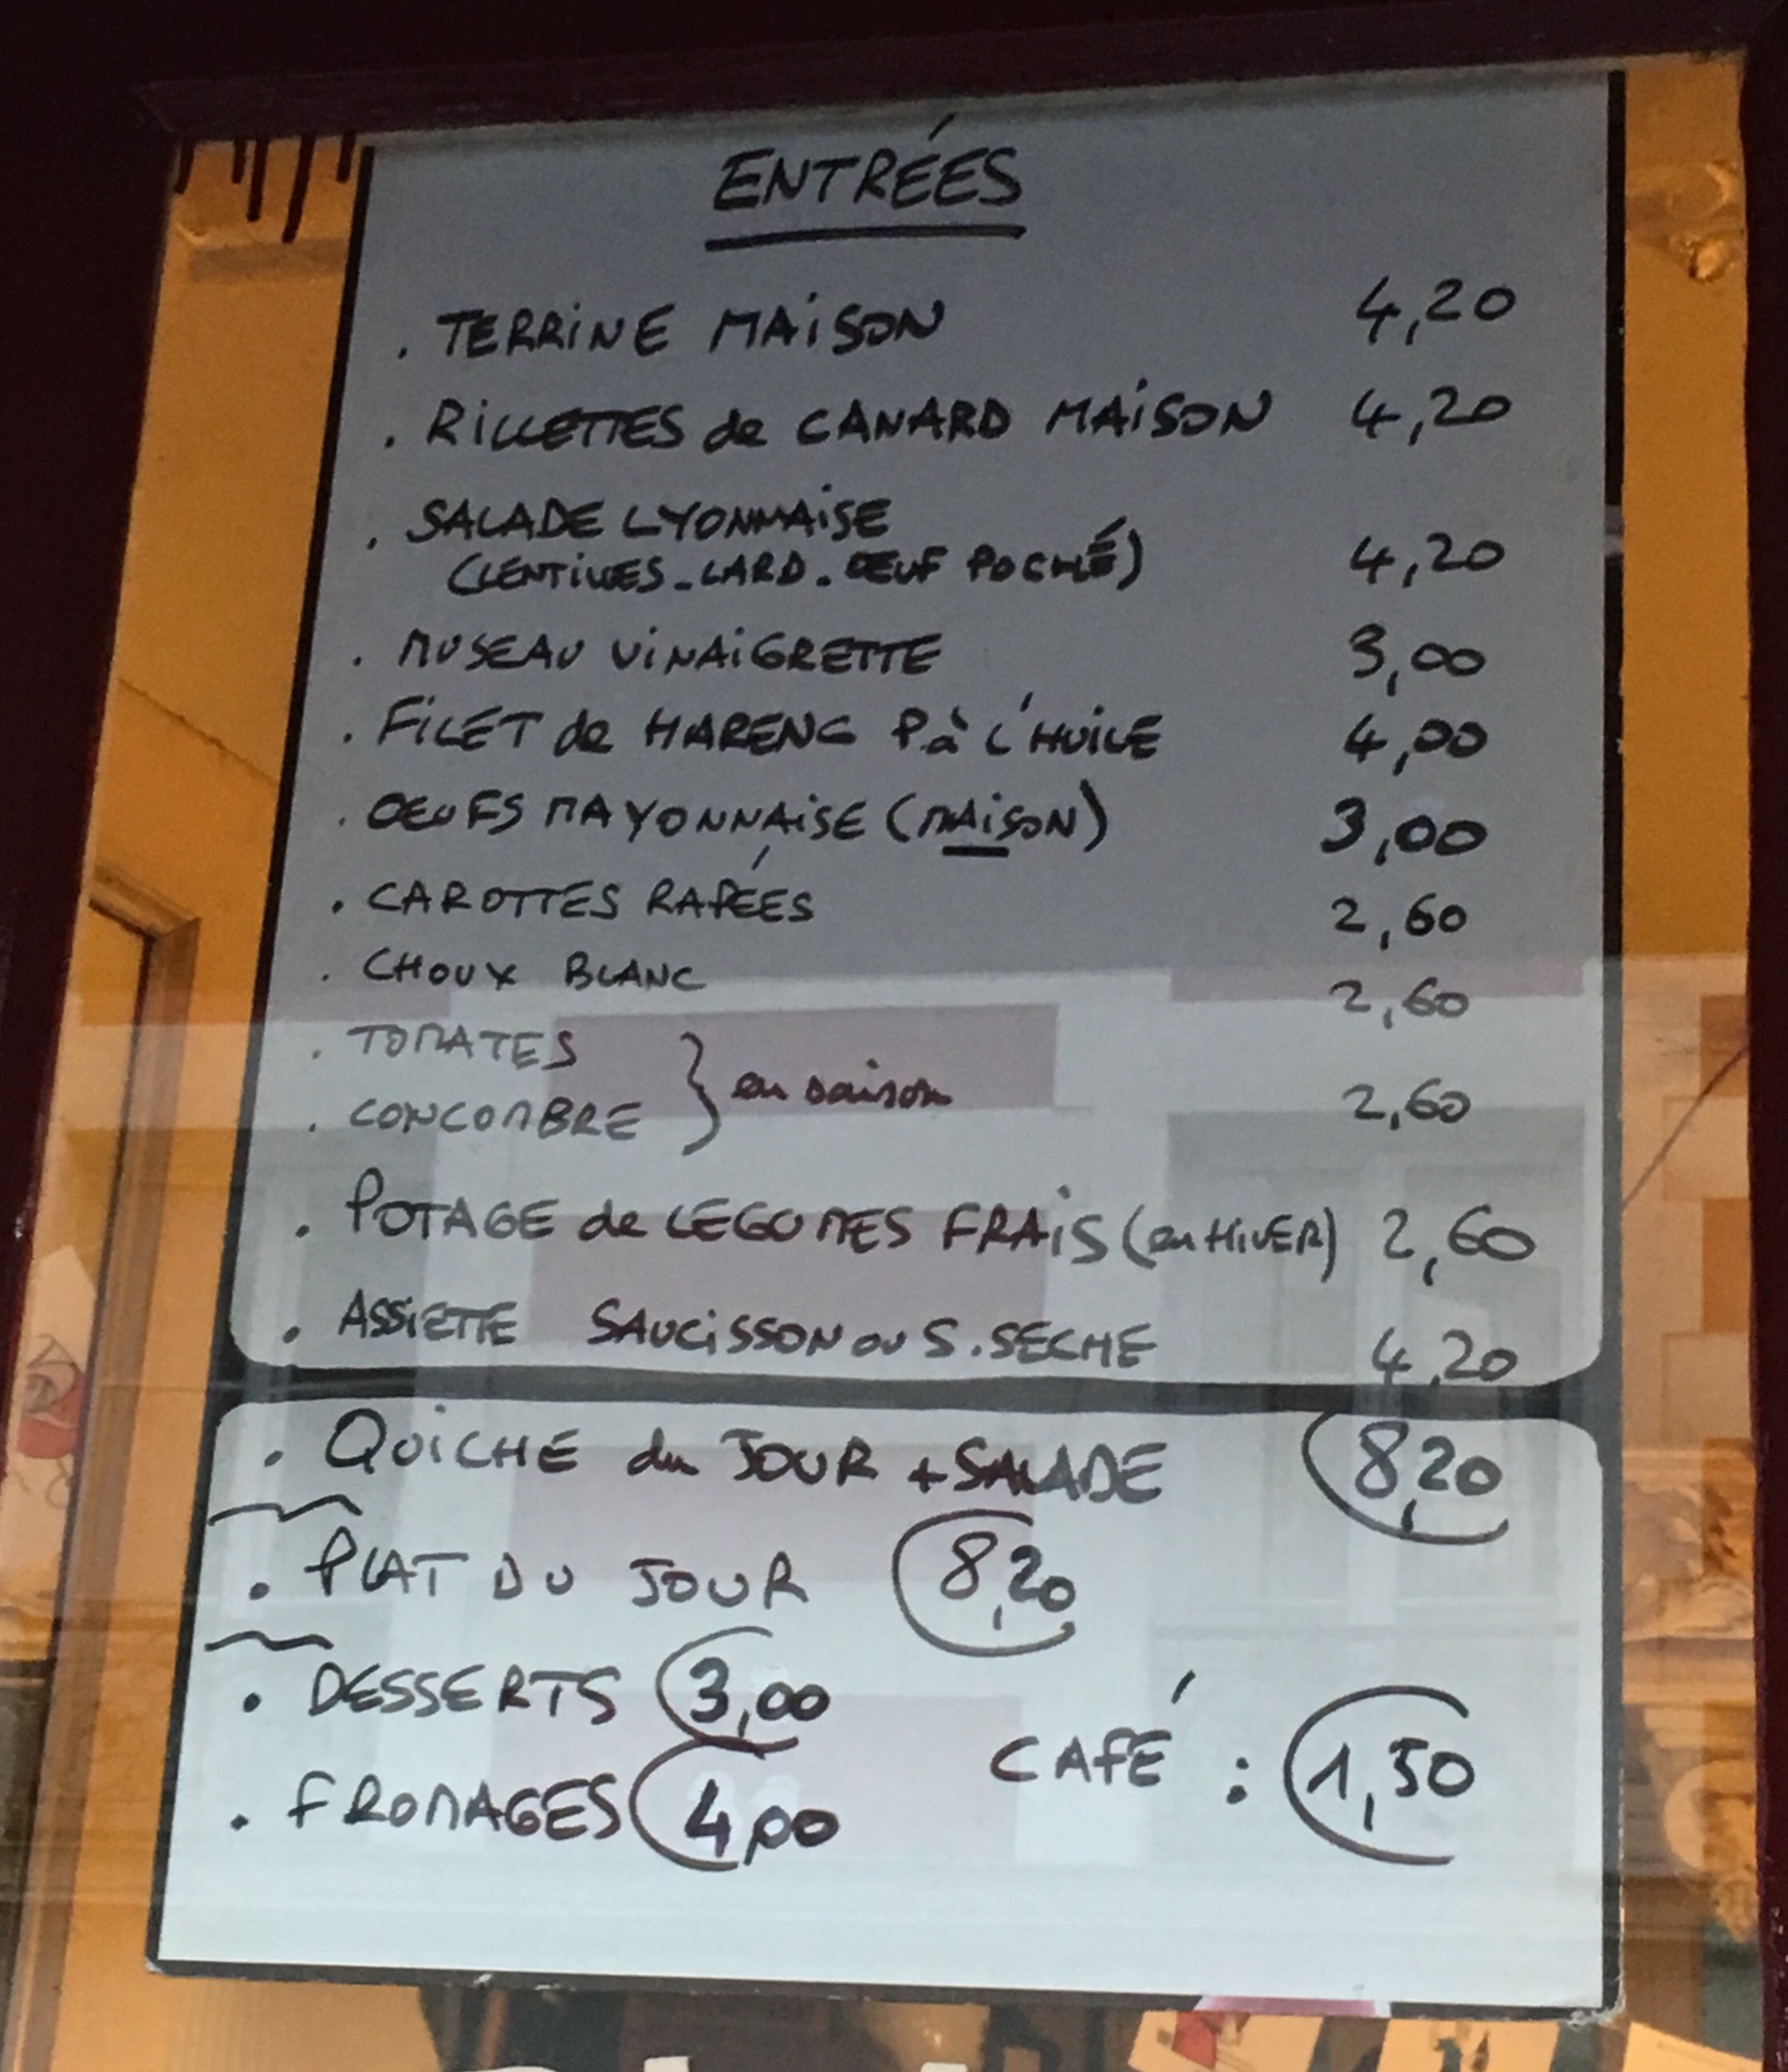 ENTRÉES
. TERRINE MAISON 4,20
. RILLETTES de CANARD MAISON 4,20
. SALADE LYONNAISE
(LENTILLES - LARD. OEUF POCHÉ) 4,20
. MUSEAU VINAIGRETTE 3,00
. FILET de HARENG P. à L'HUILE 4,00
. OEUFS MAYONNAISE (MAISON) 3,00
. CAROTTES RAPÉES 2,60
. CHOUX BLANC 2,60
. TOMATES
. CONCOMBRE } en saison 2,60
. POTAGE de LEGUMES FRAIS (en HIVER) 2,60
. ASSIETTE SAUCISSON ou S. SECHE 4,20
. QUICHE du JOUR + SALADE 8,20
. PLAT DU JOUR 8,20
. DESSERTS 3,00
CAFÉ : 1,50
. FROMAGES 4,00